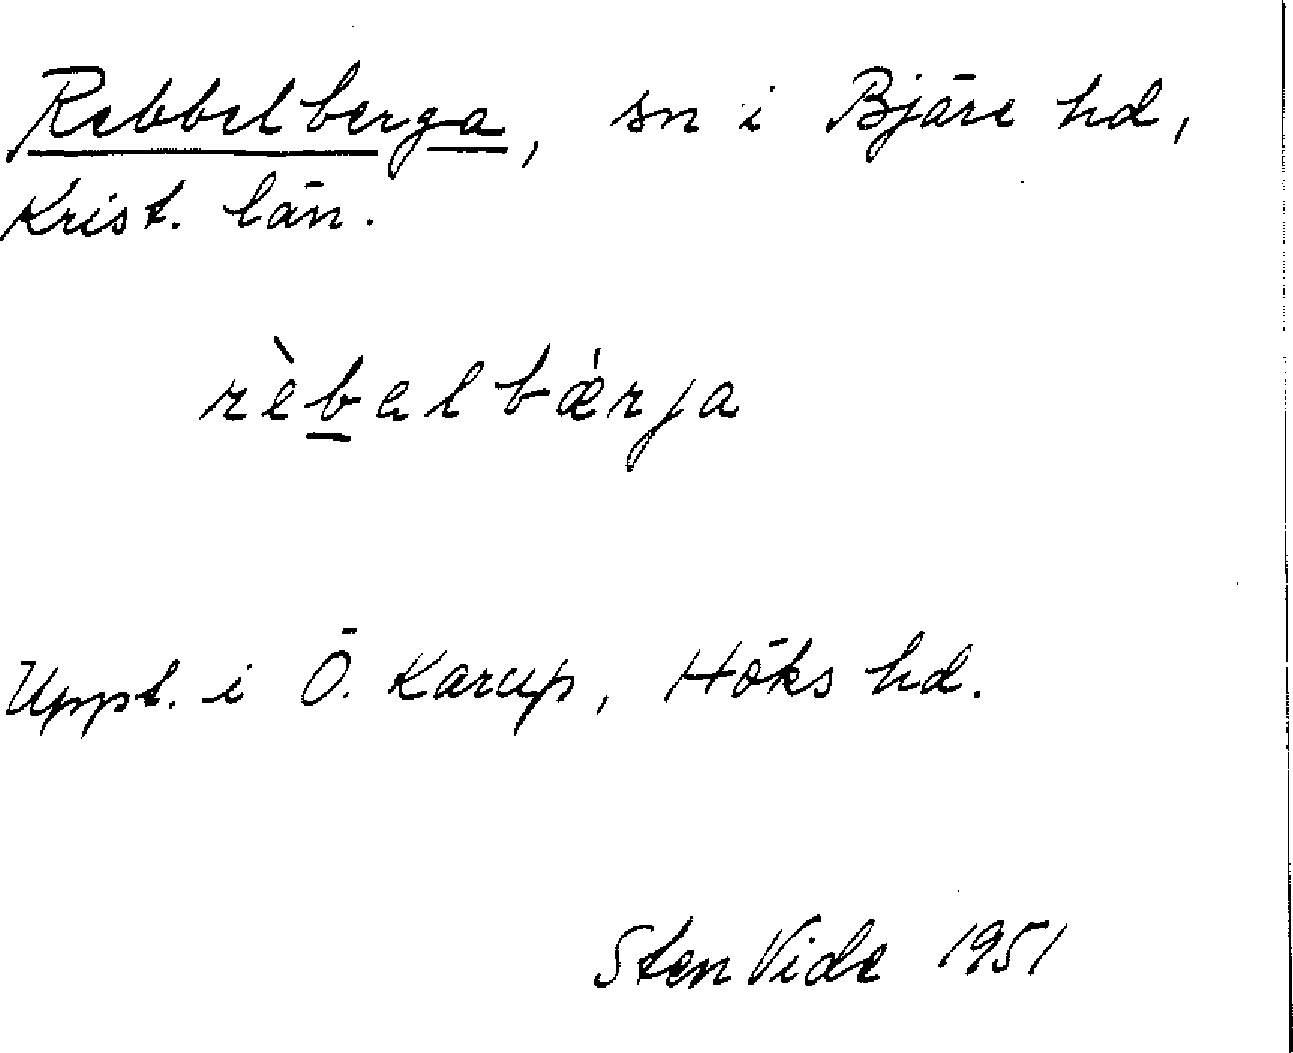 Rebbelberga, sn i Bjäre hd,
Krist. län.
rèbəlbǽrja
Uppt. i Ö. Karup, Höks hd.
Sten Vide 1951